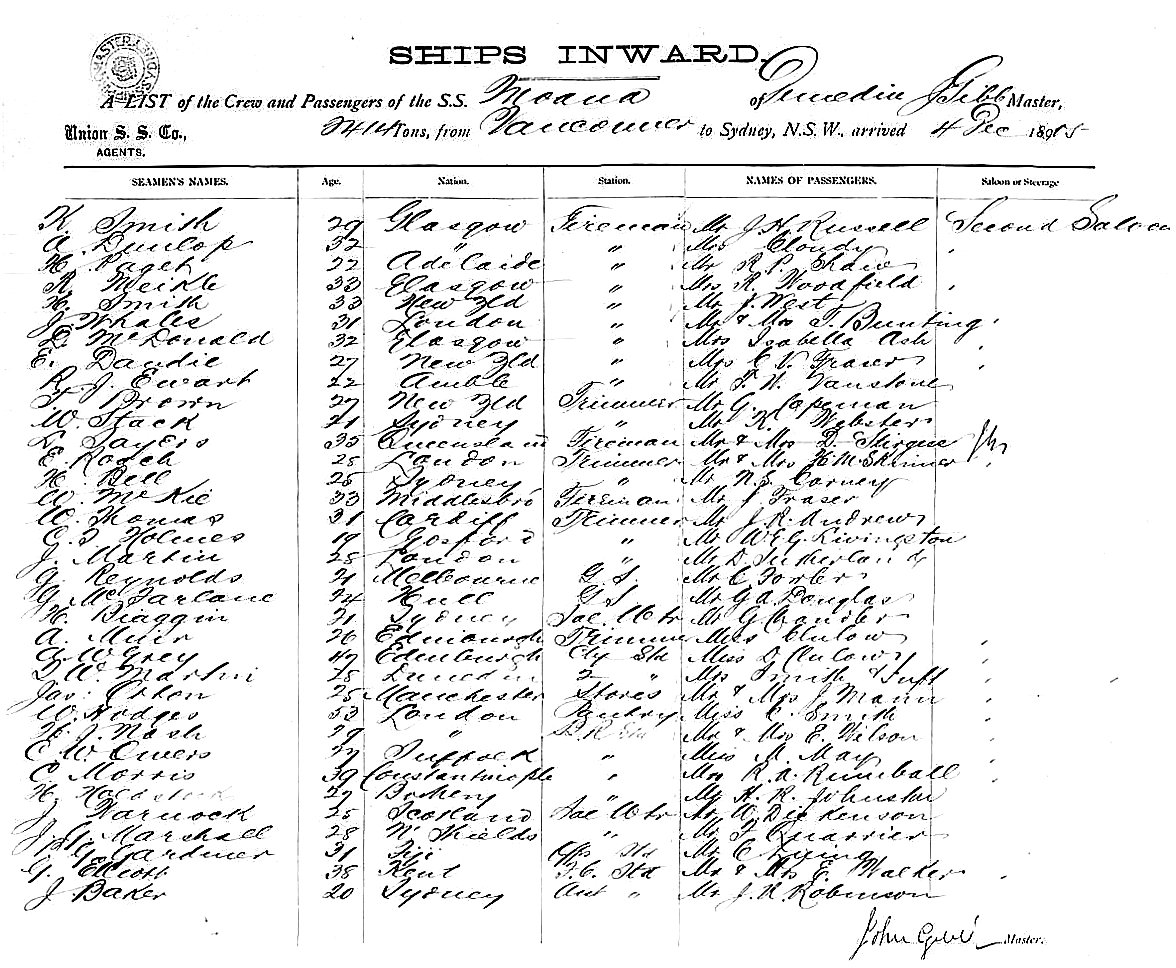 SHIPS INWARD.
A LIST of the Crew and Passengers of the S.S. Moana of Dunedin J Gibb Master,
Union S. S. Co., 2414 Tons, from Vancouver to Sydney, N.S.W., arrived 4 Dec 1895
AGENTS.
SEAMEN'S NAMES. Age. Nation. Station. NAMES OF PASSENGERS. Saloon or Steerage
K. Smith 29 Glasgow Fireman Mr J. H. Russell Second Saloon
A. Dunlop 32 " " Mrs Cloudy
H. Paget 22 Adelaide " Mr R. P. Shaw
R. Meikle 33 Glasgow " Mrs R. Woodfield
H. Smith 33 New Zld " Mr J. West
J. Whales 31 London " Mr & Mrs T. Bunting
D. McDonald 32 Glasgow " Mrs Isabella Ash
E. Dandie 27 New Zld " Mrs C. V. Fraser
R. J. Ewart 22 Amble " Mr F. N. Vanstone
F. Brown 27 New Zld Trimmer Mr G. Copeman
W. Stack 21 Sydney " Mr K. Webster
L. Sayers 35 Queensland Fireman Mr & Mrs D.
E. Roach 28 London Trimmer Mr & Mrs Skinner
H. Bell 25 Sydney " Mr N. S. Corney
W. McKie 33 Middlesbro Fireman Mr J. Fraser
W. Thomas 31 Cardiff Trimmer Mr J. R. Andrews
C. J. Holmes 19 Gosford " Mr W. G. Rivingston
J. Martin 28 London " Mr D. Sutherland
G. Reynolds 21 Melbourne G. S. Mr C Forbes
G. McFarlane 24 Hull G S Mr G A Douglas
H. Biaggin 21 Sydney Sal. Wtr Mr G Chandler
A. Muir 26 Edinburgh Trimmer Miss Onlow
A. W. Grey 47 Edinburgh Std Miss D. Onlow
D. W. Martin 28 Dunedin 2 " Mrs Smith & Inft
Jas. Orton 25 Manchester Stores Mr & Mrs J. Mann
W. Hodges 53 London Pantry Miss C. Smith
H. J. Nash 29 " Mr & Mrs E. Wilson
C. W. Owers 27 Suffolk " Miss M. May
C. Morris 39 Constantinople " Mrs R. A. Rumball
H. 27 " Mr H. R. Johnston
J. Warnock 25 Scotland Sal Wtr Mr W. Dickenson
J. G. Marshall 28 N. Shields " Mr F. Quarrier
G. Gardner 31 Fiji Std Mr C
G. Elliott 38 Kent F.C. Std Mr & Mrs E. Walker
J Baker 20 Sydney " Mr J. H. Robinson
John Gibb Master.